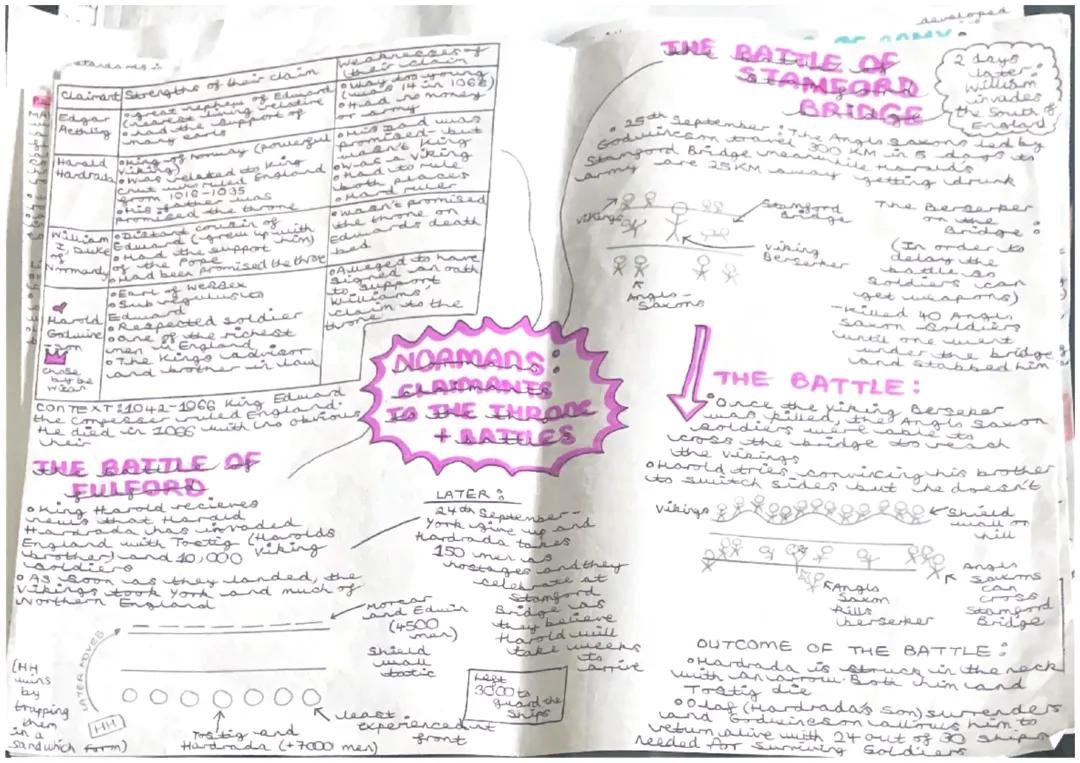 developed
standards:
Claimant
Strengths of their claim
Weaknesses of their claim
Edgar Aethling
• great nephew of Edward
• nearest living relative
• had the support of many earls
• Way too young (was 14 in 1066)
• Had no money or army
Harald Hardrada
• King of Norway (powerful Viking)
• Was related to King Cnut who ruled England from 1016-1035
• His father was promised the throne
• His Dad was promised - but wasn't King
• Was a Viking
• Had to rule both places
• Hard ruler
William I, Duke of Normandy
• Distant cousin of Edward (grew up with him)
• Had the support of the Pope
• Had been promised the throne
• Wasn't promised the throne on Edwards death bed
Harold Godwinesson
chose by the witan
• Earl of Wessex
• Sub regulus to Edward
• Respected soldier
• One of the richest men in England
• The Kings advisor and brother in law
• Alleged to have signed an oath to support Williams claim to the throne
CONTEXT: 1042-1066 King Edward
the confessor ruled England.
He died in 1066 with no obvious
heir
NORMANS:
CLAIMANTS
TO THE THRONE
+ BATTLES
THE BATTLE OF
FULFORD
• King Harold recieves
news that Harald
Hardrada has invaded
England with Tostig (Harolds
brother) and 10,000 Viking
soldiers
• As soon as they landed, the
Vikings took York and much of
Northern England
Morcar
and Edwin
(4500
men)
Shield
wall
tactic
LATER MOVES
HH
(HH
wins
by
trapping
them
in a
sandwich form)
Tostig and
Hardrada (+7000 men)
least
experienced at
front
LATER:
24th September -
York give up and
Hardrada takes
150 men as
hostages and they
celebrate at
Stamford
Bridge as
they believe
Harold will
take weeks
to
arrive
Left
3000 to
guard the
ships
THE BATTLE OF
STAMFORD
BRIDGE
2 days
later:
William
invades
the South of
England
• 25th September: The Anglo Saxons led by
Godwinson travel 300 KM in 5 days to
Stamford Bridge meanwhile Harald's
army are 25KM away getting drunk
Vikings
Stamford
Bridge
Viking
Berserker
Anglo-
Saxons
The Berserker
on the
Bridge:
(In order to
delay the
battle so
soldiers can
get weapons)
- Killed 40 Anglo
Saxon Soldiers
until one went
under the bridge
and stabbed him
THE BATTLE:
• Once the Viking Berseker
was killed, the Anglo Saxon
soldiers were able to
cross the bridge to reach
the Vikings
• Harold tries convincing his brother
to switch sides but he doesn't
Vikings
Shield
wall on
hill
Anglo
Saxon
kills
berserker
Anglo
Saxons
can
cross
Stamford
Bridge
OUTCOME OF THE BATTLE:
• Hardrada is struck in the neck
with an arrow. Both him and
Tostig die
• Olaf (Hardrada's Son) surrenders
and Godwincson allows him to
return alive with 24 out of 30 ships
needed for surviving soldiers